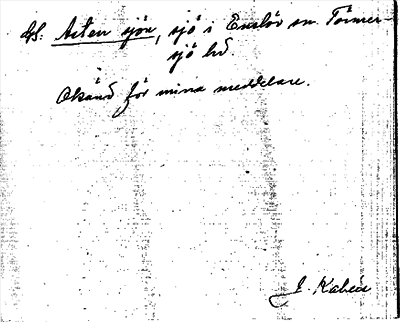 GS. Asten sjön, sjö i Enslöv sn. Tönner-
sjö hd
Okänd för mina meddelare.
J. Kalén